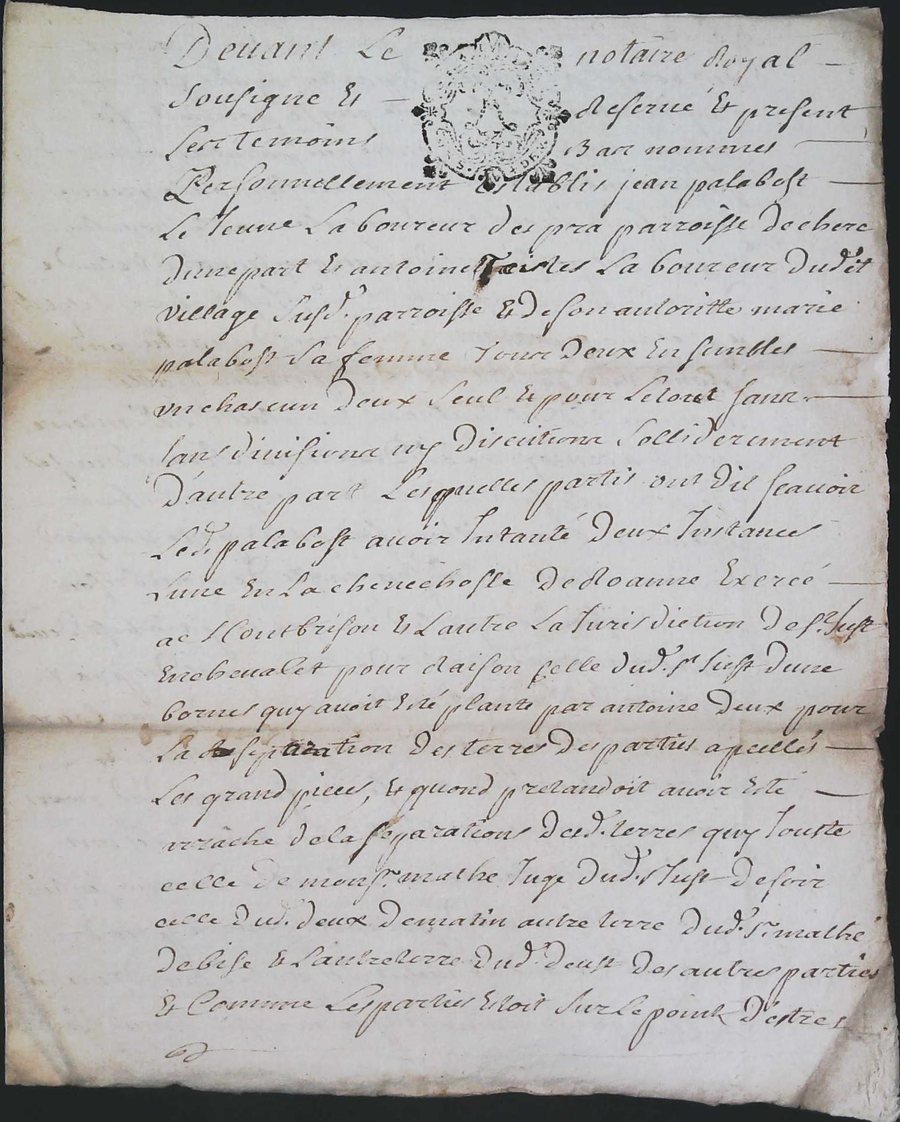 Devant Le notaire Royal
sousigne Et Reservé Et present
Les temoins Bas nommes
Personnellement Establis jean palabost
Le Jeune Laboureur des pra parroisse de chere
Dune part Et antoine Laboureur dud.t
village susd. parroisse Et de son autoritte marie
palabost sa femme tous Deux Ensembles
un chascun Deux seul Et pour Le tout sans
sans divisions ny Discutions sollidérement
D'autre part Lesquelles partis ont dit scavoir
Led. palabost avoir Intanté Deux Instances
Lune En La chenechosse De Roanne Exercé
a Montbrison Et Lautre La Jurisdiction De st. Just
En chevalet pour Raison celle dud. st Just dune
bornes quy avoit Esté planté par antoine Deux pour
La separation Des terres Des parties apellés
Les grand pieces, Et quond pretandoit avoir Esté
arraché de la separations Desd. terres quy Jouste
celle De monsr. mathe Juge dud. st Just De soir
celle dud. deux De matin autre terre Dud. sr. mathé
De bise Et Lautre terre dud. Des autres parties
Et Comme Les parties Estoit sur Le point D'estres